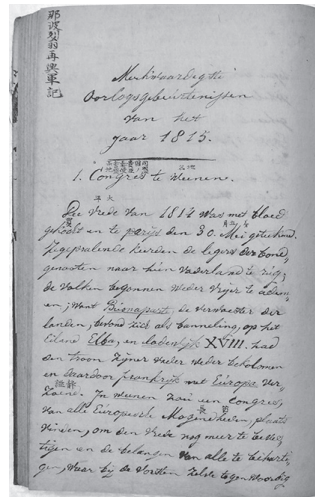 那波烈翁再興軍記
Merkwaardigste
Oorlogsgebeurtenissen
van het
jaar 1815.
1. Congres te Weenen.
De vrede van 1814 was met bloed
gekocht en te parijs den 30. Mei geteekend.
Zegepralende keerden de legers der bond
genooten naar hun vaderland te rug;
de volken begonnen weder vrijer te adem
en; want Buonaparte, de verwoester der
landen, bevond zich als banneling, op het
Eiland Elba, en lodewijk XVIII. had
den troon zijner vader weder bekomen
en daardoor frankrijk met Europa ver
zoend. In weenen zou een congres,
van alle Europesche Mogendheden, plaats
vinden, om den vrede nog meer te beves
tigen en de belangen van alle te behartig
gen, waar bij de Vorsten zelve tegenwoordig